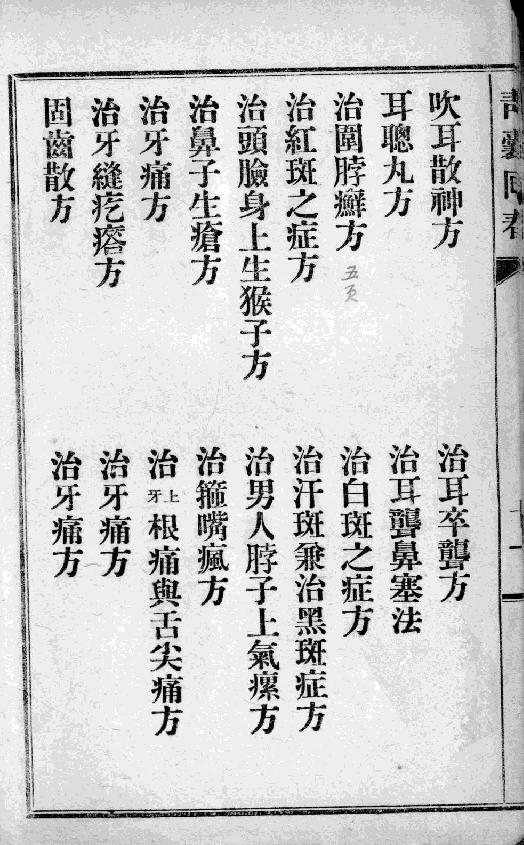 吹耳散神方
治耳卒聾方
耳聰丸方
治耳聾鼻塞法
治圍脖癬方
五页
治白斑之症方
治紅斑之症方
治汗斑兼治黑斑症方
治頭臉身上生猴子方
治男人脖子上氣瘰方
治鼻子生瘡方
治箍嘴瘋方
治牙痛方
治上牙根痛與舌尖痛方
治牙縫疙瘩方
治牙痛方
固齒散方
治牙痛方